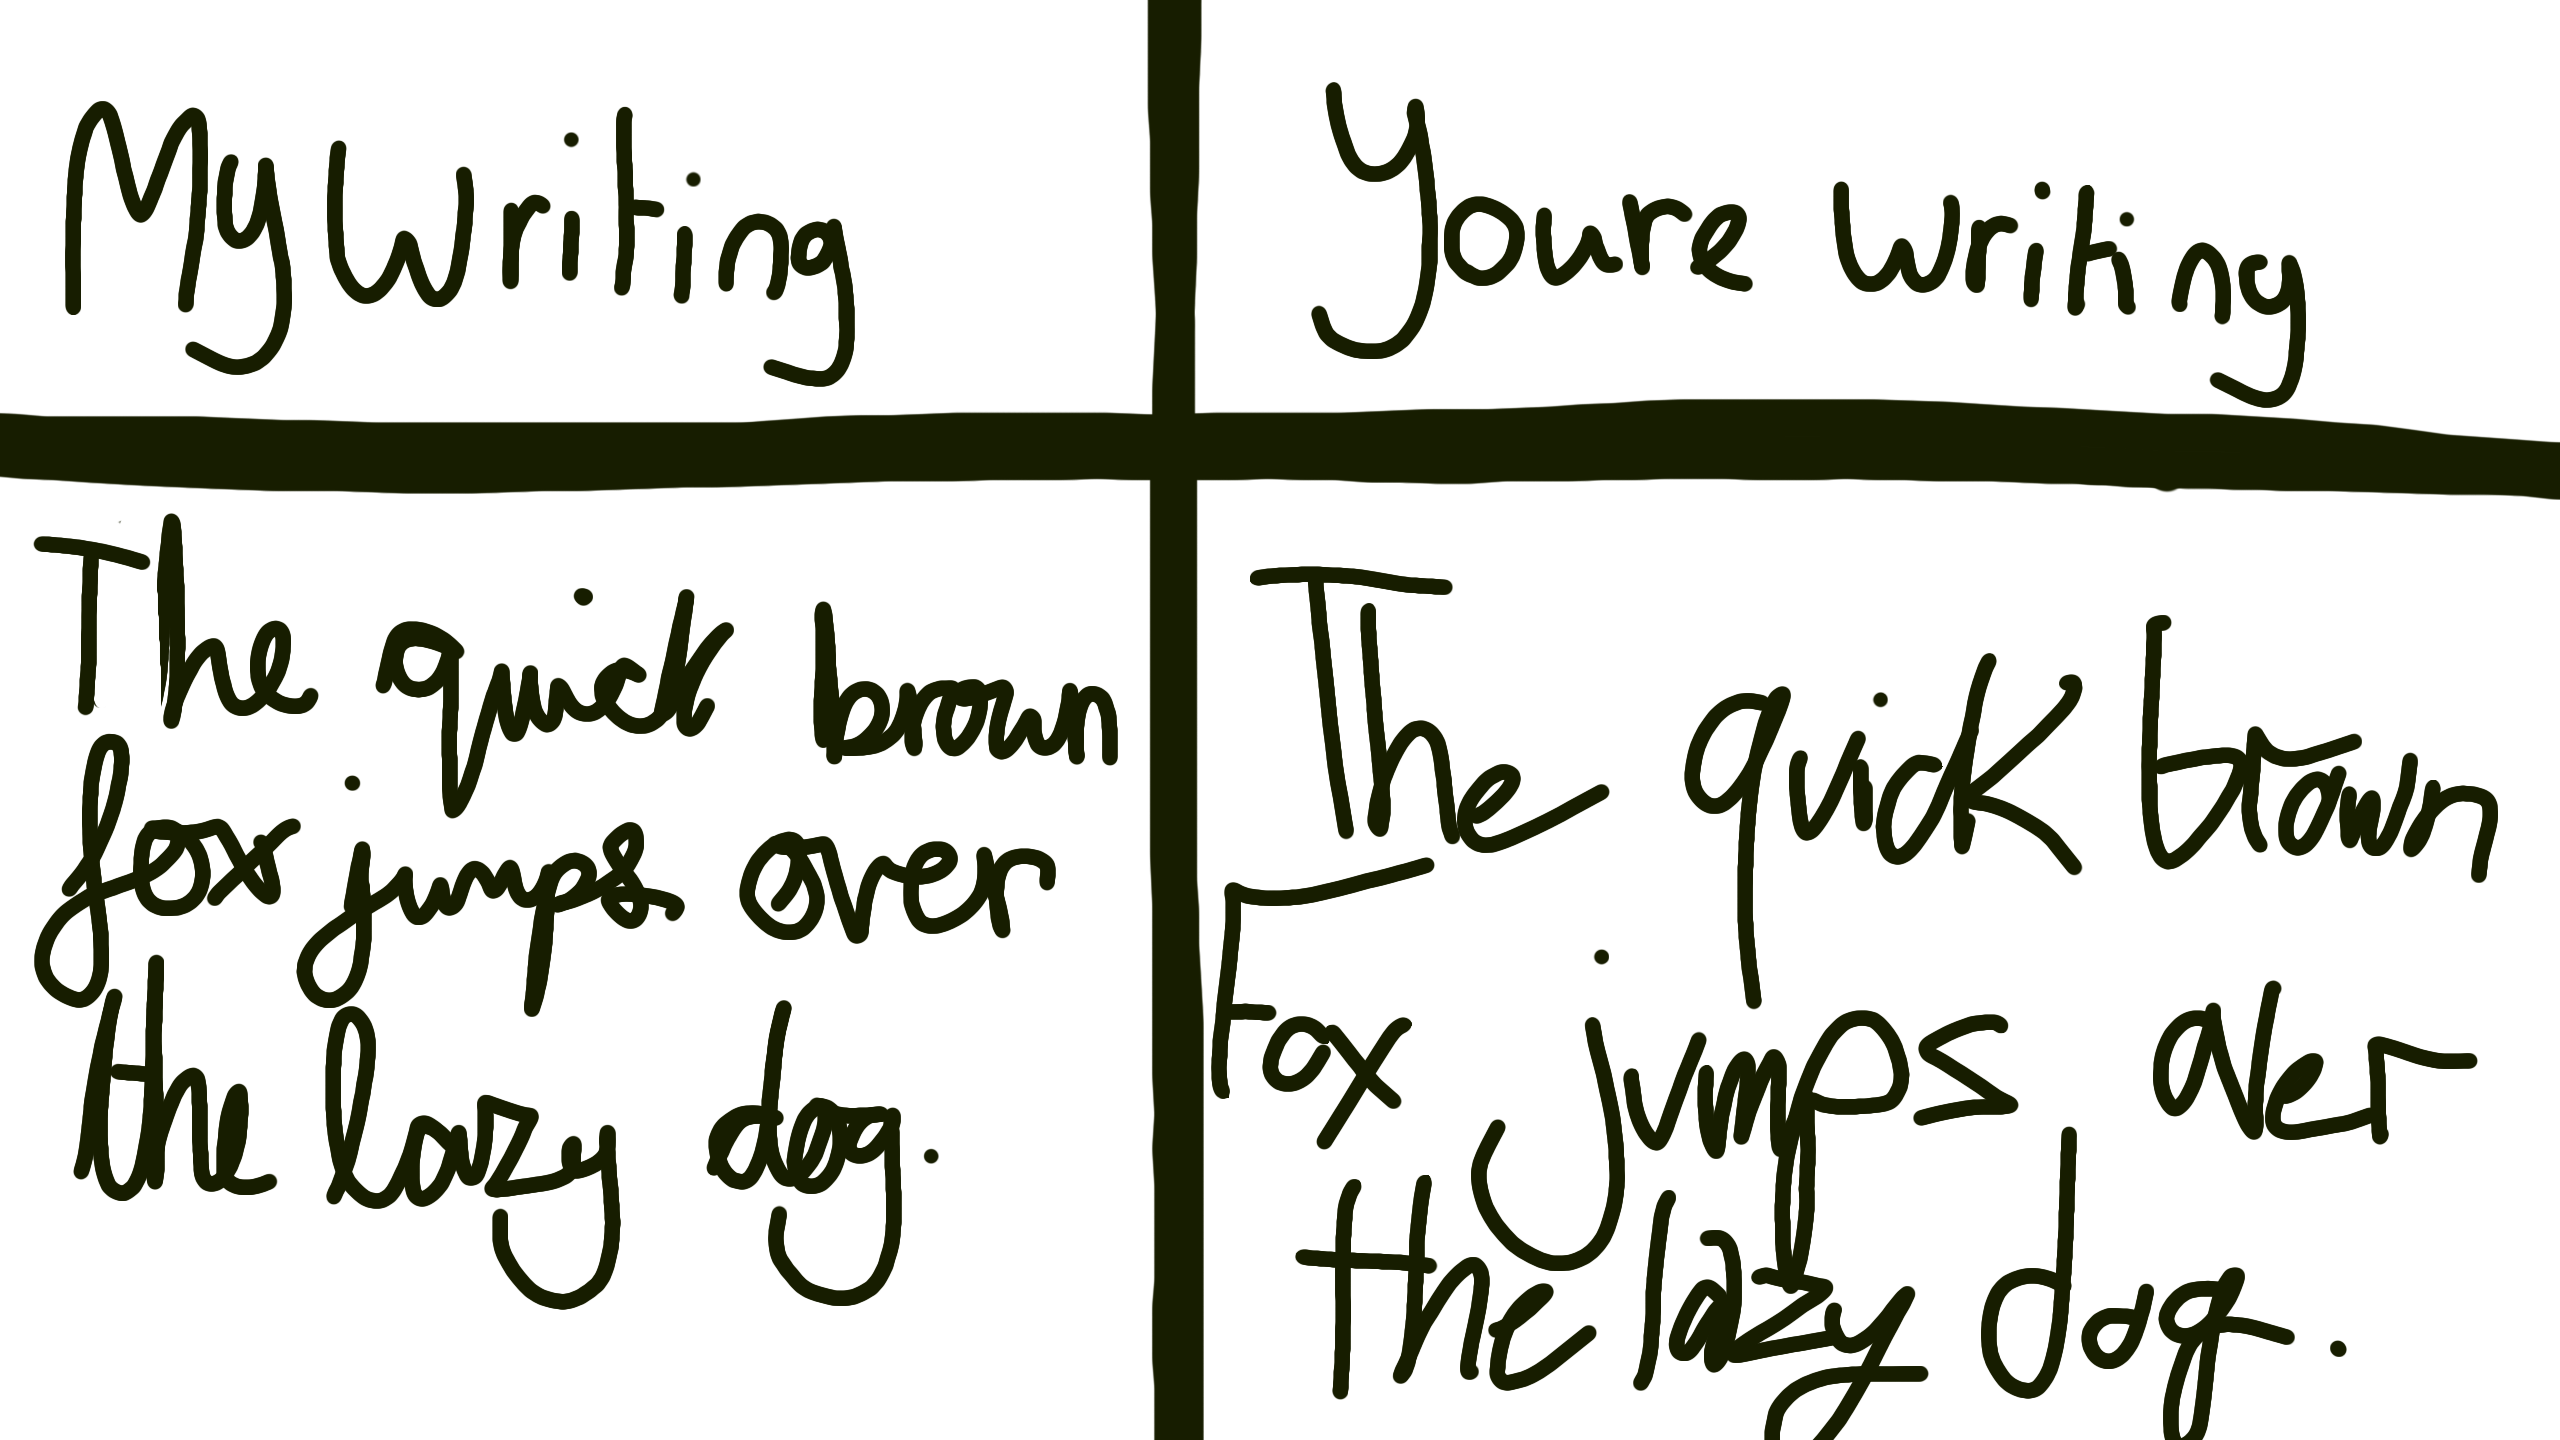 My Writing
Youre Writing
The quick brown
fox jumps over
the lazy dog.
The quick brown
Fox jumps over
the lazy dog.